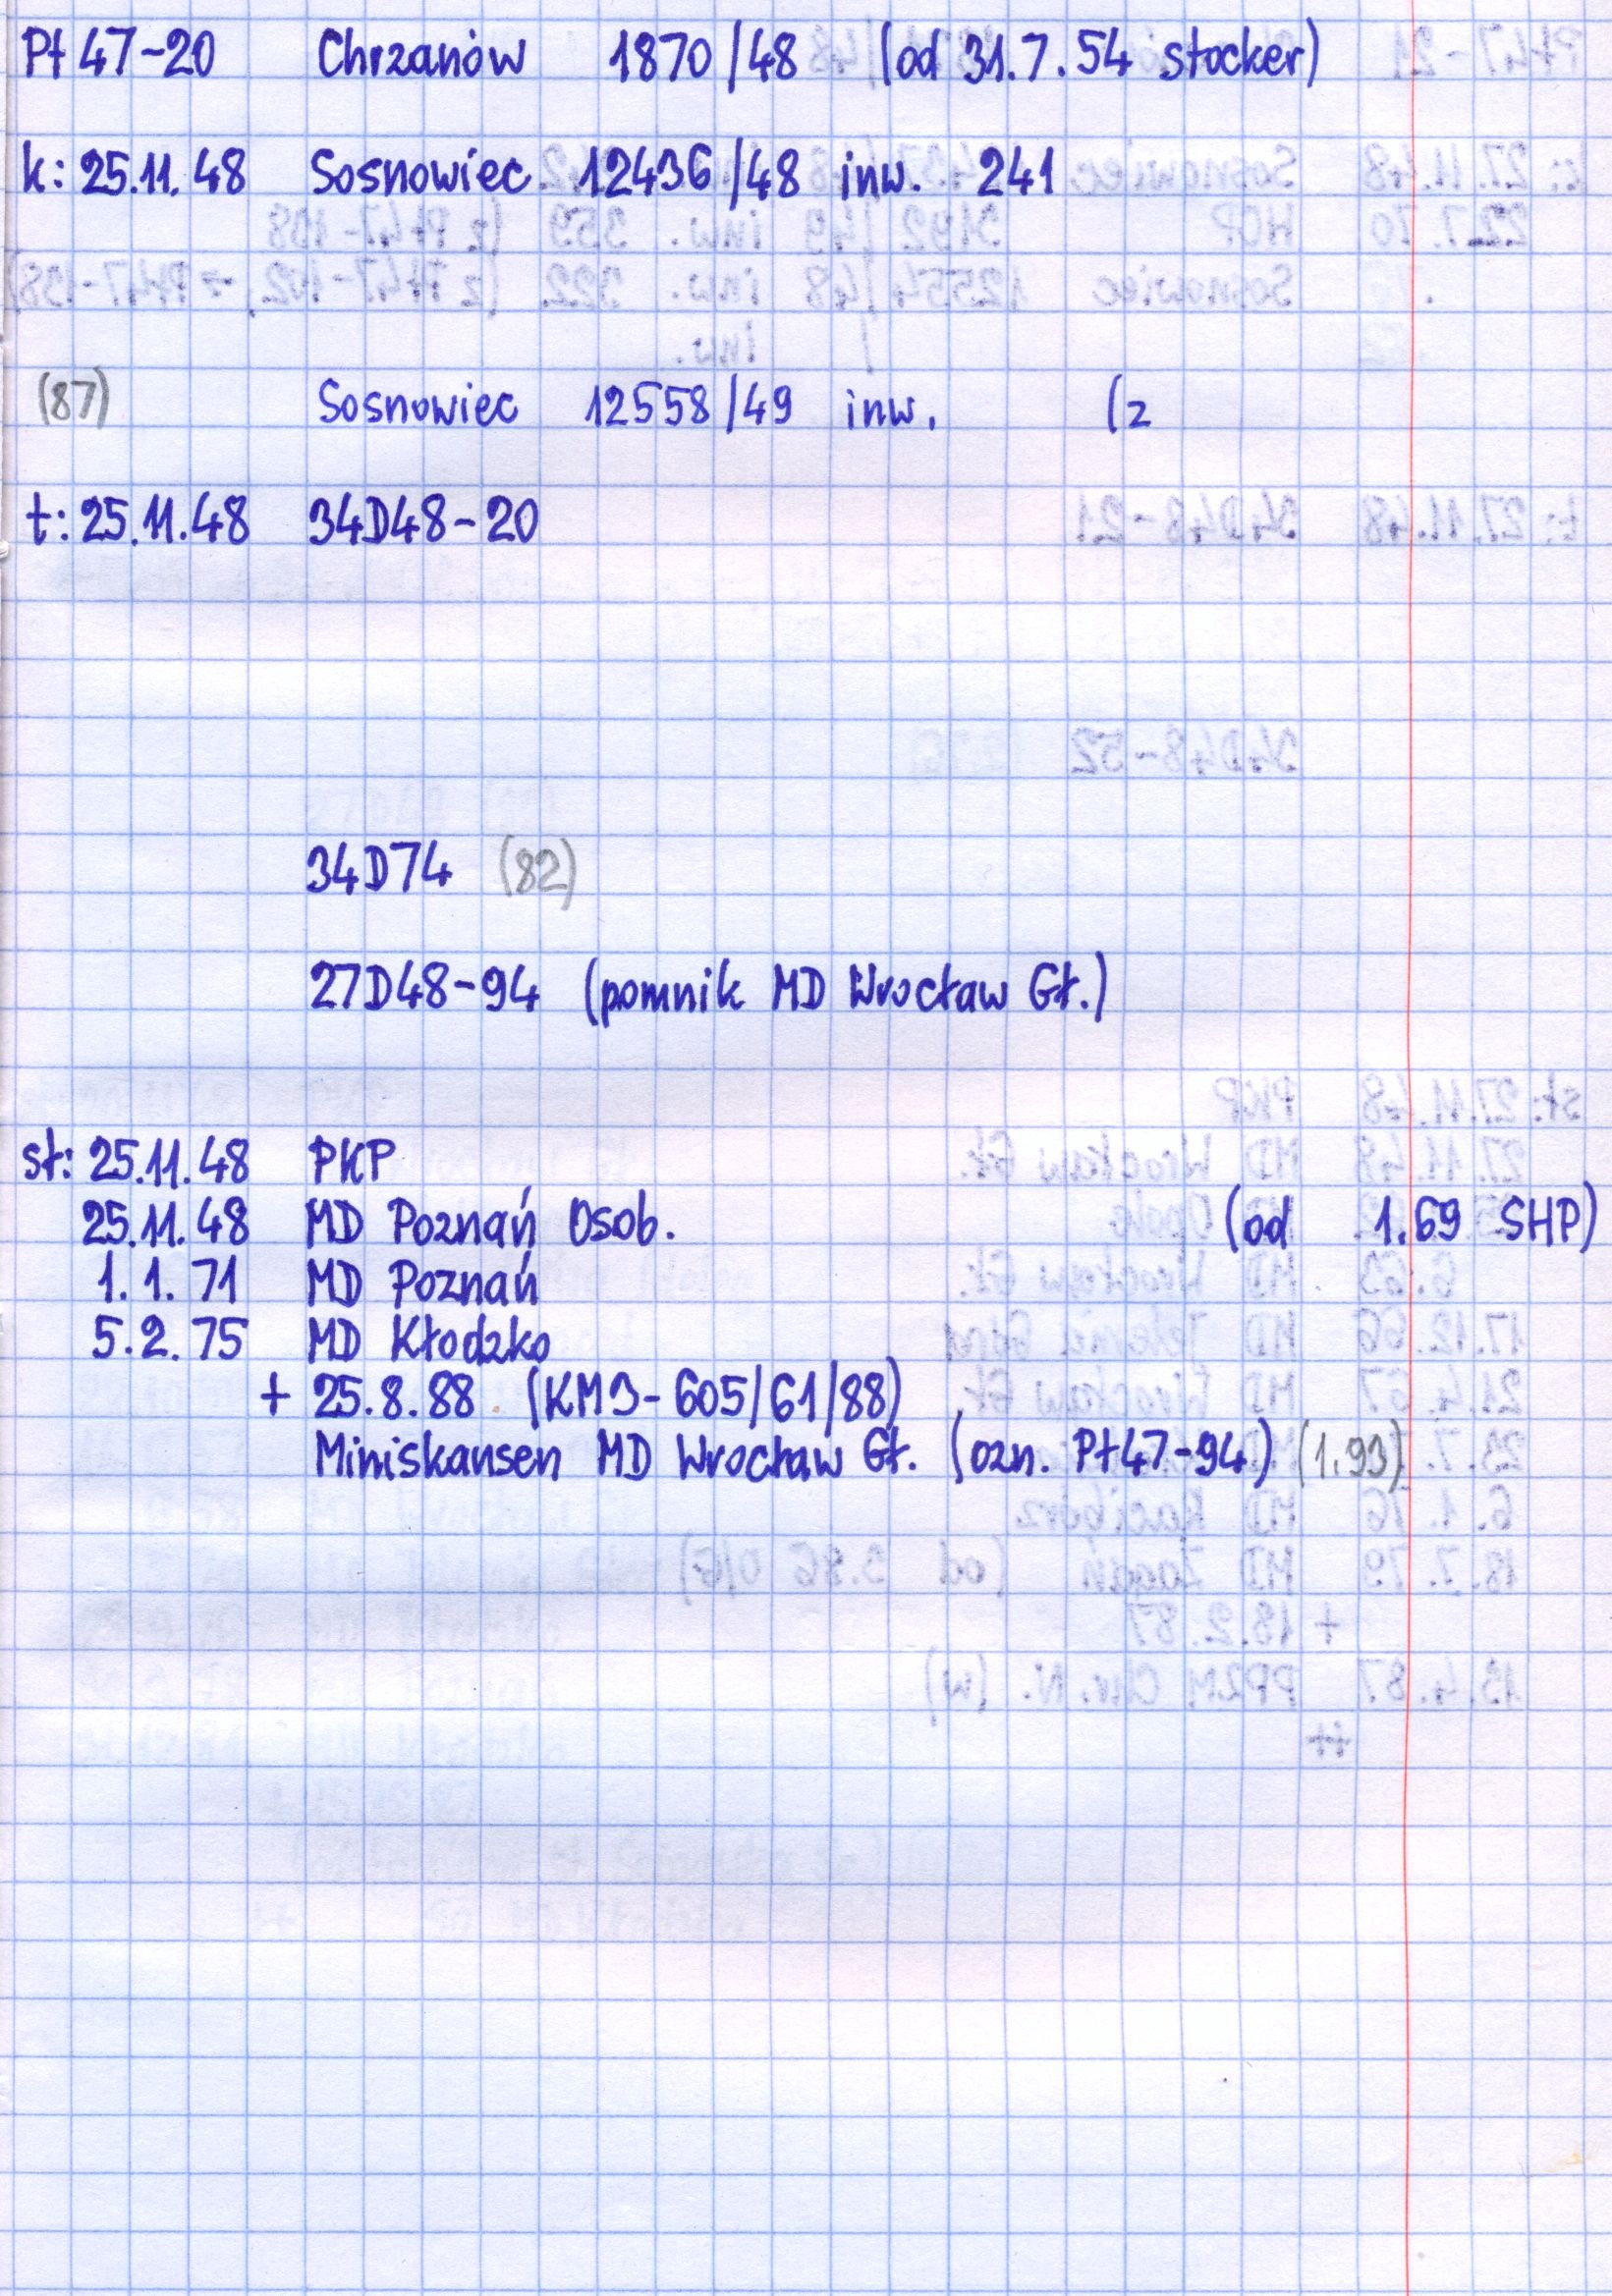 Pt 47-20 Chrzanów 1870/48 (od 31.7.54 stocker)
k: 25.11.48 Sosnowiec 12436/48 inw. 241
(87) Sosnowiec 12558/49 inw. (z
t: 25.11.48 34D48-20
34D74 (82)
27D48-94 (pomnik MD Wrocław Gł.)
st: 25.11.48 PKP
25.11.48 MD Poznań Osob. (od 1.69 SHP)
1.1.71 MD Poznań
5.2.75 MD Kłodzko
+ 25.8.88 (KM9-605/61/88)
Miniskansen MD Wrocław Gł. (ozn. Pt47-94) (1.93)